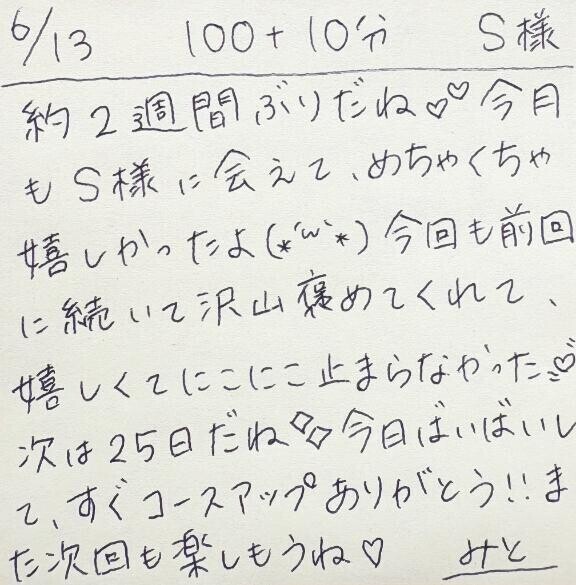 6/13 100+10分 S様
約2週間ぶりだね♡♡今月
もS様に会えて、めちゃくちゃ
嬉しかったよ(*´ω`*)今回も前回
に続いて沢山褒めてくれて、
嬉しくてにこにこ止まらなかった♡
次は25日だね◇◇今日ばいばいし
て、すぐコースアップありがとう!!ま
た次回も楽しもうね♡ みと